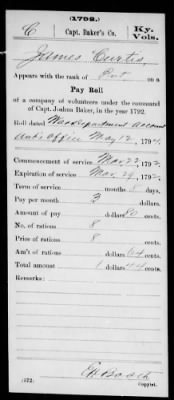 (1792.)
C | Capt. Baker's Co. | Ky. Vols.
James Curtis
Appears with the rank of Pvt on a
Pay Roll
of a company of volunteers under the command
of Capt. Joshua Baker, in the year 1792.
Roll dated War Department Account
ant's Office May 12, 1794.
Commencement of service Mar 22, 1792.
Expiration of service Mar. 29, 1792.
Term of service months 8 days.
Pay per month 3 dollars.
Amount of pay dollars 80 cents.
No. of rations 8
Price of rations 8 cents.
Am't of rations dollars 64 cents.
Total amount 1 dollars 44 cents.
Remarks:
(572)
Copyist.